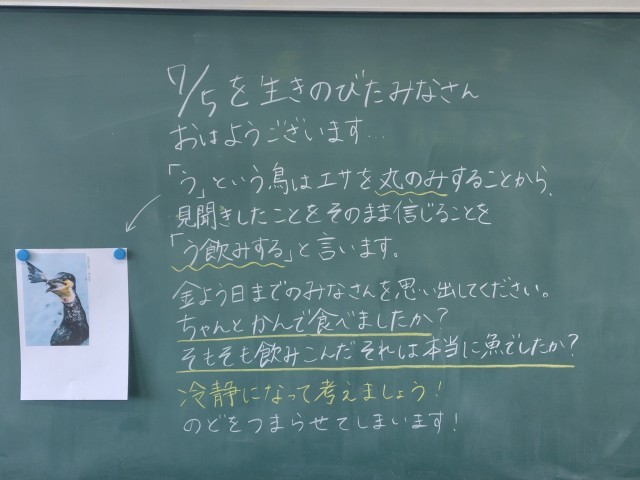 7/5を生きのびたみなさん
おはようございます…
「う」という鳥はエサを丸のみすることから、
見聞きしたことをそのまま信じることを
「う飲みする」と言います。
金よう日までのみなさんを思い出してください。
ちゃんとかんで食べましたか？
そもそも飲みこんだそれは本当に魚でしたか？
冷静になって考えましょう！
のどをつまらせてしまいます！